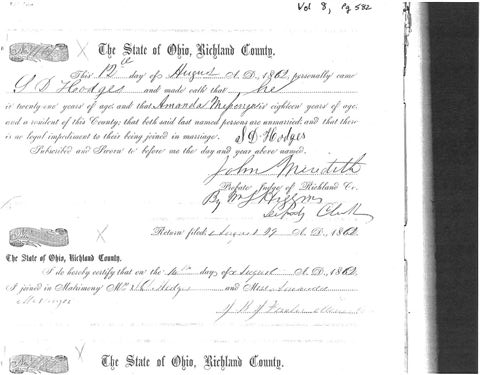 Vol 8, Pg 582
The State of Ohio, Richland County.
This 12th day of August A. D., 1862, personally came
S D Hodges and made oath that he
is twenty-one years of age, and that Amanda is eighteen years of age,
and a resident of this County; that both said last named persons are unmarried, and that there
is no legal impediment to their being joined in marriage. S D Hodges
Subscribed and Sworn to before me the day and year above named.
John Meredith
Probate Judge of Richland Co.
By Higgins
Deputy Clerk
Return filed August 29 A. D., 1862
The State of Ohio, Richland County.
I do hereby certify that on the day of August A. D., 1862,
I joined in Matrimony Mr. Hodges and Miss Amanda
The State of Ohio, Richland County.